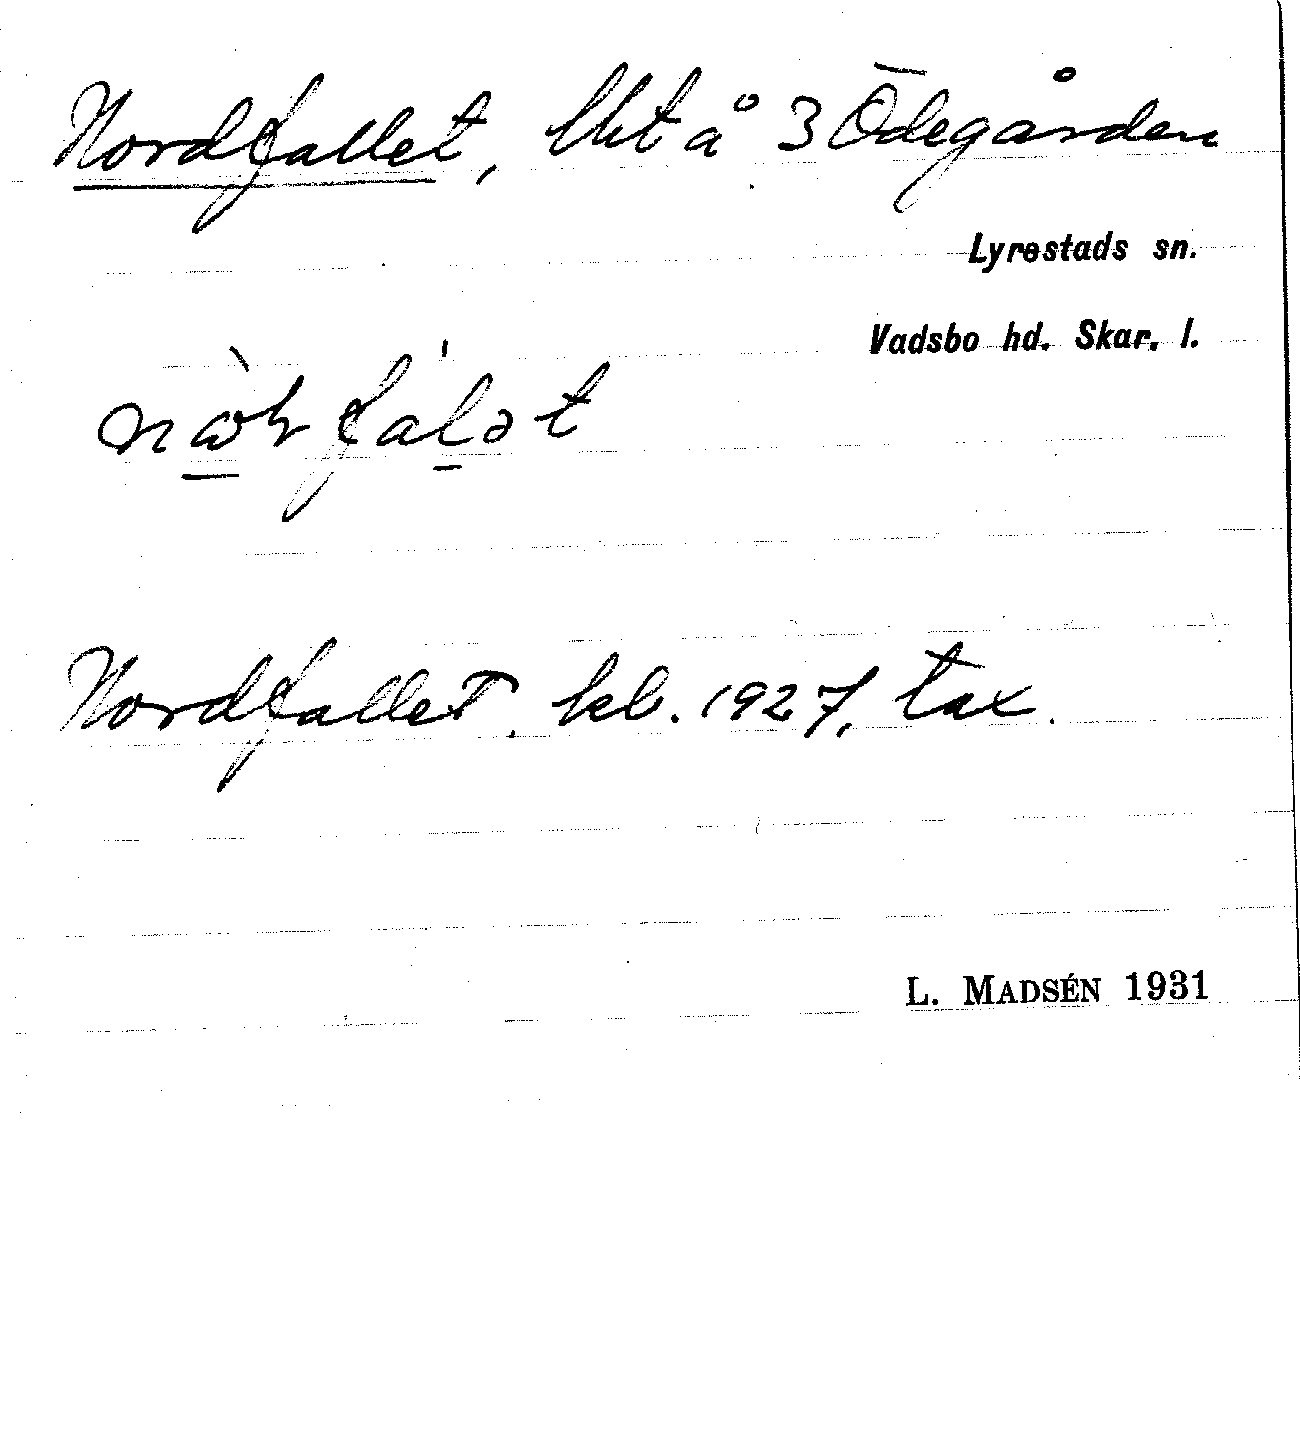 Nordfallet, lht å 3 Ödegården
Lyrestads sn.
Vadsbo hd. Skar. l.
Nordfallet. kb. 1927, tax.
L. MADSÉN 1931